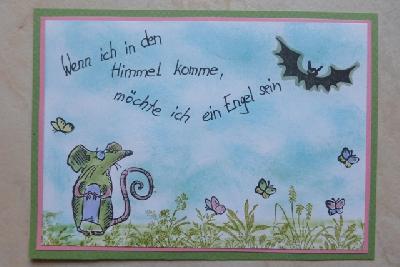 Wenn ich in den
Himmel komme,
möchte ich ein Engel sein